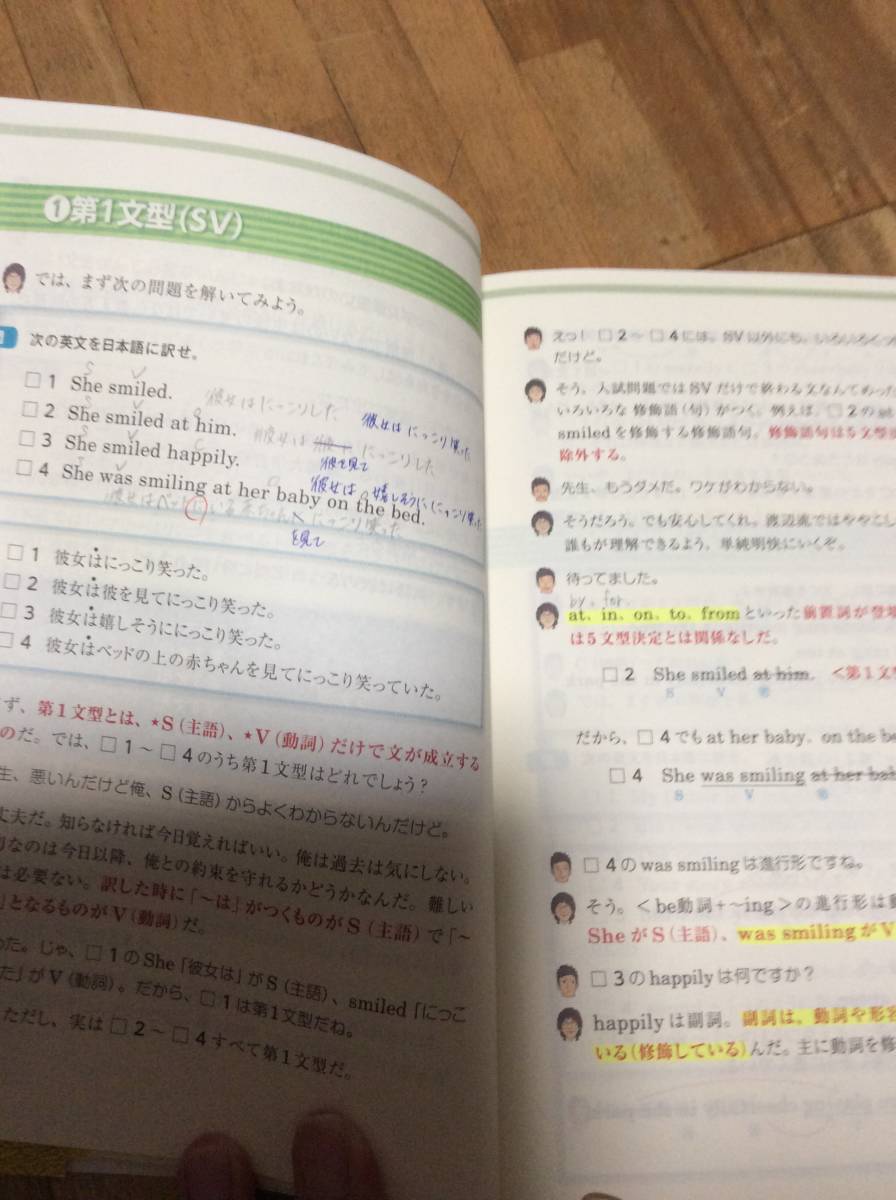 ❶第1文型(SV)
では、まず次の問題を解いてみよう。
次の英文を日本語に訳せ。
S V
□1 She smiled.
彼女はにっこりした
□2 She smiled at him.
彼女は にっこり笑った
彼女は にっこりした
彼を見て
□3 She smiled happily.
彼女は 嬉しそうに にっこり笑った
□4 She was smiling at her baby on the bed.
彼女はベッドにいる赤ちゃん にっこり笑った
を見て
□1 彼女はにっこり笑った。
□2 彼女は彼を見てにっこり笑った。
□3 彼女は嬉しそうににっこり笑った。
□4 彼女はベッドの上の赤ちゃんを見てにっこり笑っていた。
ず、第1文型とは、★S(主語)、★V(動詞)だけで文が成立する
のだ。では、□1〜□4のうち第1文型はどれでしょう?
生、悪いんだけど俺、S(主語)からよくわからないんだけど。
丈夫だ。知らなければ今日覚えればいい。俺は過去は気にしない。
なのは今日以降、俺との約束を守れるかどうかなんだ。難しい
は必要ない。訳した時に「〜は」がつくものがS(主語)で「〜
」となるものがV(動詞)だ。
った。じゃ、□1のShe「彼女は」がS(主語)、smiled「にっこ
た」がV(動詞)。だから、□1は第1文型だね。
ただし、実は□2〜□4すべて第1文型だ。
えっ!□2〜□4には、SV以外にも、いろいろくっ
だけど。
そう。入試問題ではSVだけで終わる文なんてめった
いろいろな修飾語(句)がつく。例えば、□2のat
smiledを修飾する修飾語句。修飾語句は5文型
除外する。
先生、もうダメだ。ワケがわからない。
そうだろう。でも安心してくれ。渡辺流ではややこし
誰もが理解できるよう、単純明快にいくぞ。
待ってました。
by. for.
at、in、on、to、fromといった前置詞が登場
は5文型決定とは関係なしだ。
□2 She smiled at him. <第1文
S V
だから、□4でもat her baby、on the be
□4 She was smiling at her bab
S V
□4のwas smilingは進行形ですね。
そう。<be動詞+〜ing>の進行形は
SheがS(主語)、was smilingがV
□3のhappilyは何ですか?
happilyは副詞。副詞は、動詞や形容
いる(修飾している)んだ。主に動詞を修